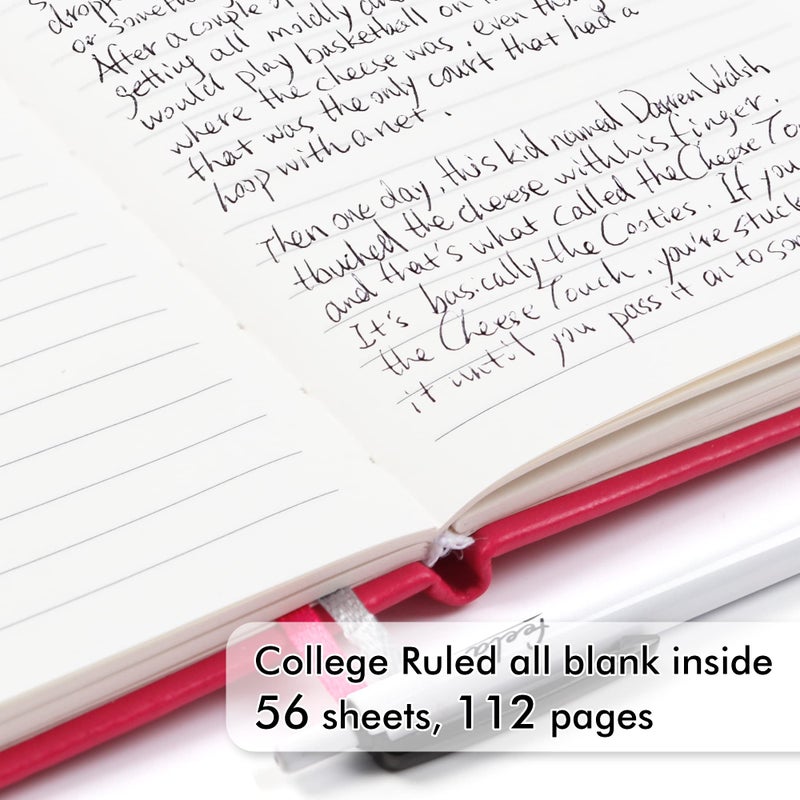 dropp
or someth
After a couple
getting all moldy an
would play basketball on
where the cheese was, even tho
that was the only court that had a
hoop with a net.
Then one day, this kid named Darren Walsh
touched the cheese with his finger.
and that's what called the Cheese To
It's basically the Cooties. If you
the Cheese Touch, you're stuck
it until you pass it on to so
feela
College Ruled all blank inside
56 sheets, 112 pages